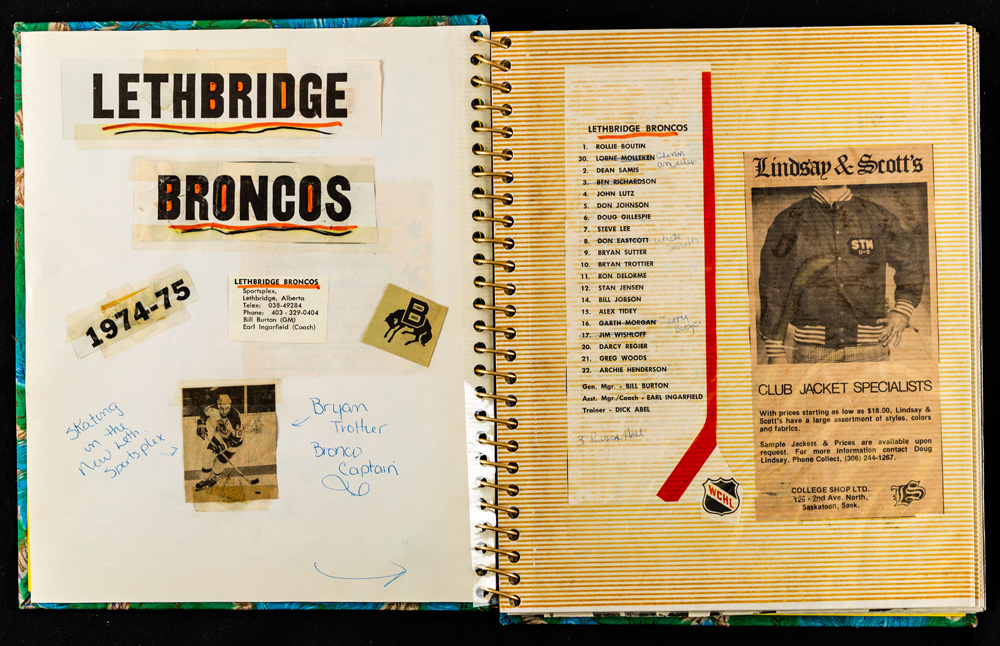 LETHBRIDGE
BRONCOS
1974-75
LETHBRIDGE BRONCOS
Sportsplex,
Lethbridge, Alberta
Telex: 038-49284
Phone: 403 - 329-0404
Bill Burton (GM)
Earl Ingarfield (Coach)
B
Skating
in the
New Leth.
Sportsplex
Bryan
Trottier
Bronco
Captain
LETHBRIDGE BRONCOS
1. ROLLIE BOUTIN
30. LORNE MOLLEKEN
2. DEAN SAMIS
3. BEN RICHARDSON
4. JOHN LUTZ
5. DON JOHNSON
6. DOUG GILLESPIE
7. STEVE LEE
8. DON EASTCOTT
9. BRYAN SUTTER
10. BRYAN TROTTIER
11. RON DELORME
12. STAN JENSEN
14. BILL JOBSON
15. ALEX TIDEY
16. GARTH MORGAN
17. JIM WISHLOFF
20. DARCY REGIER
21. GREG WOODS
22. ARCHIE HENDERSON
Gen. Mgr. - BILL BURTON
Asst. Mgr./Coach - EARL INGARFIELD
Trainer - DICK ABEL
3
WCHL
Lindsay & Scott's
STM
CLUB JACKET SPECIALISTS
With prices starting as low as $18.00, Lindsay &
Scott's have a large assortment of styles, colors
and fabrics.
Sample Jackets & Prices are available upon
request. For more information contact Doug
Lindsay, Phone Collect, (306) 244-1267.
COLLEGE SHOP LTD.
125 - 2nd Ave. North,
Saskatoon, Sask.
LS